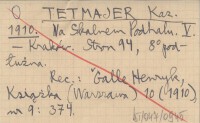 O TETMAJER Kaz.
1910. Na Skalnem Podhalu. V.
— Kraków. Stron 94, 8° pod-
łużna.
Rec.: Galle Henryk,
Książka (Warszawa) 10 (1910),
nr 9: 374.